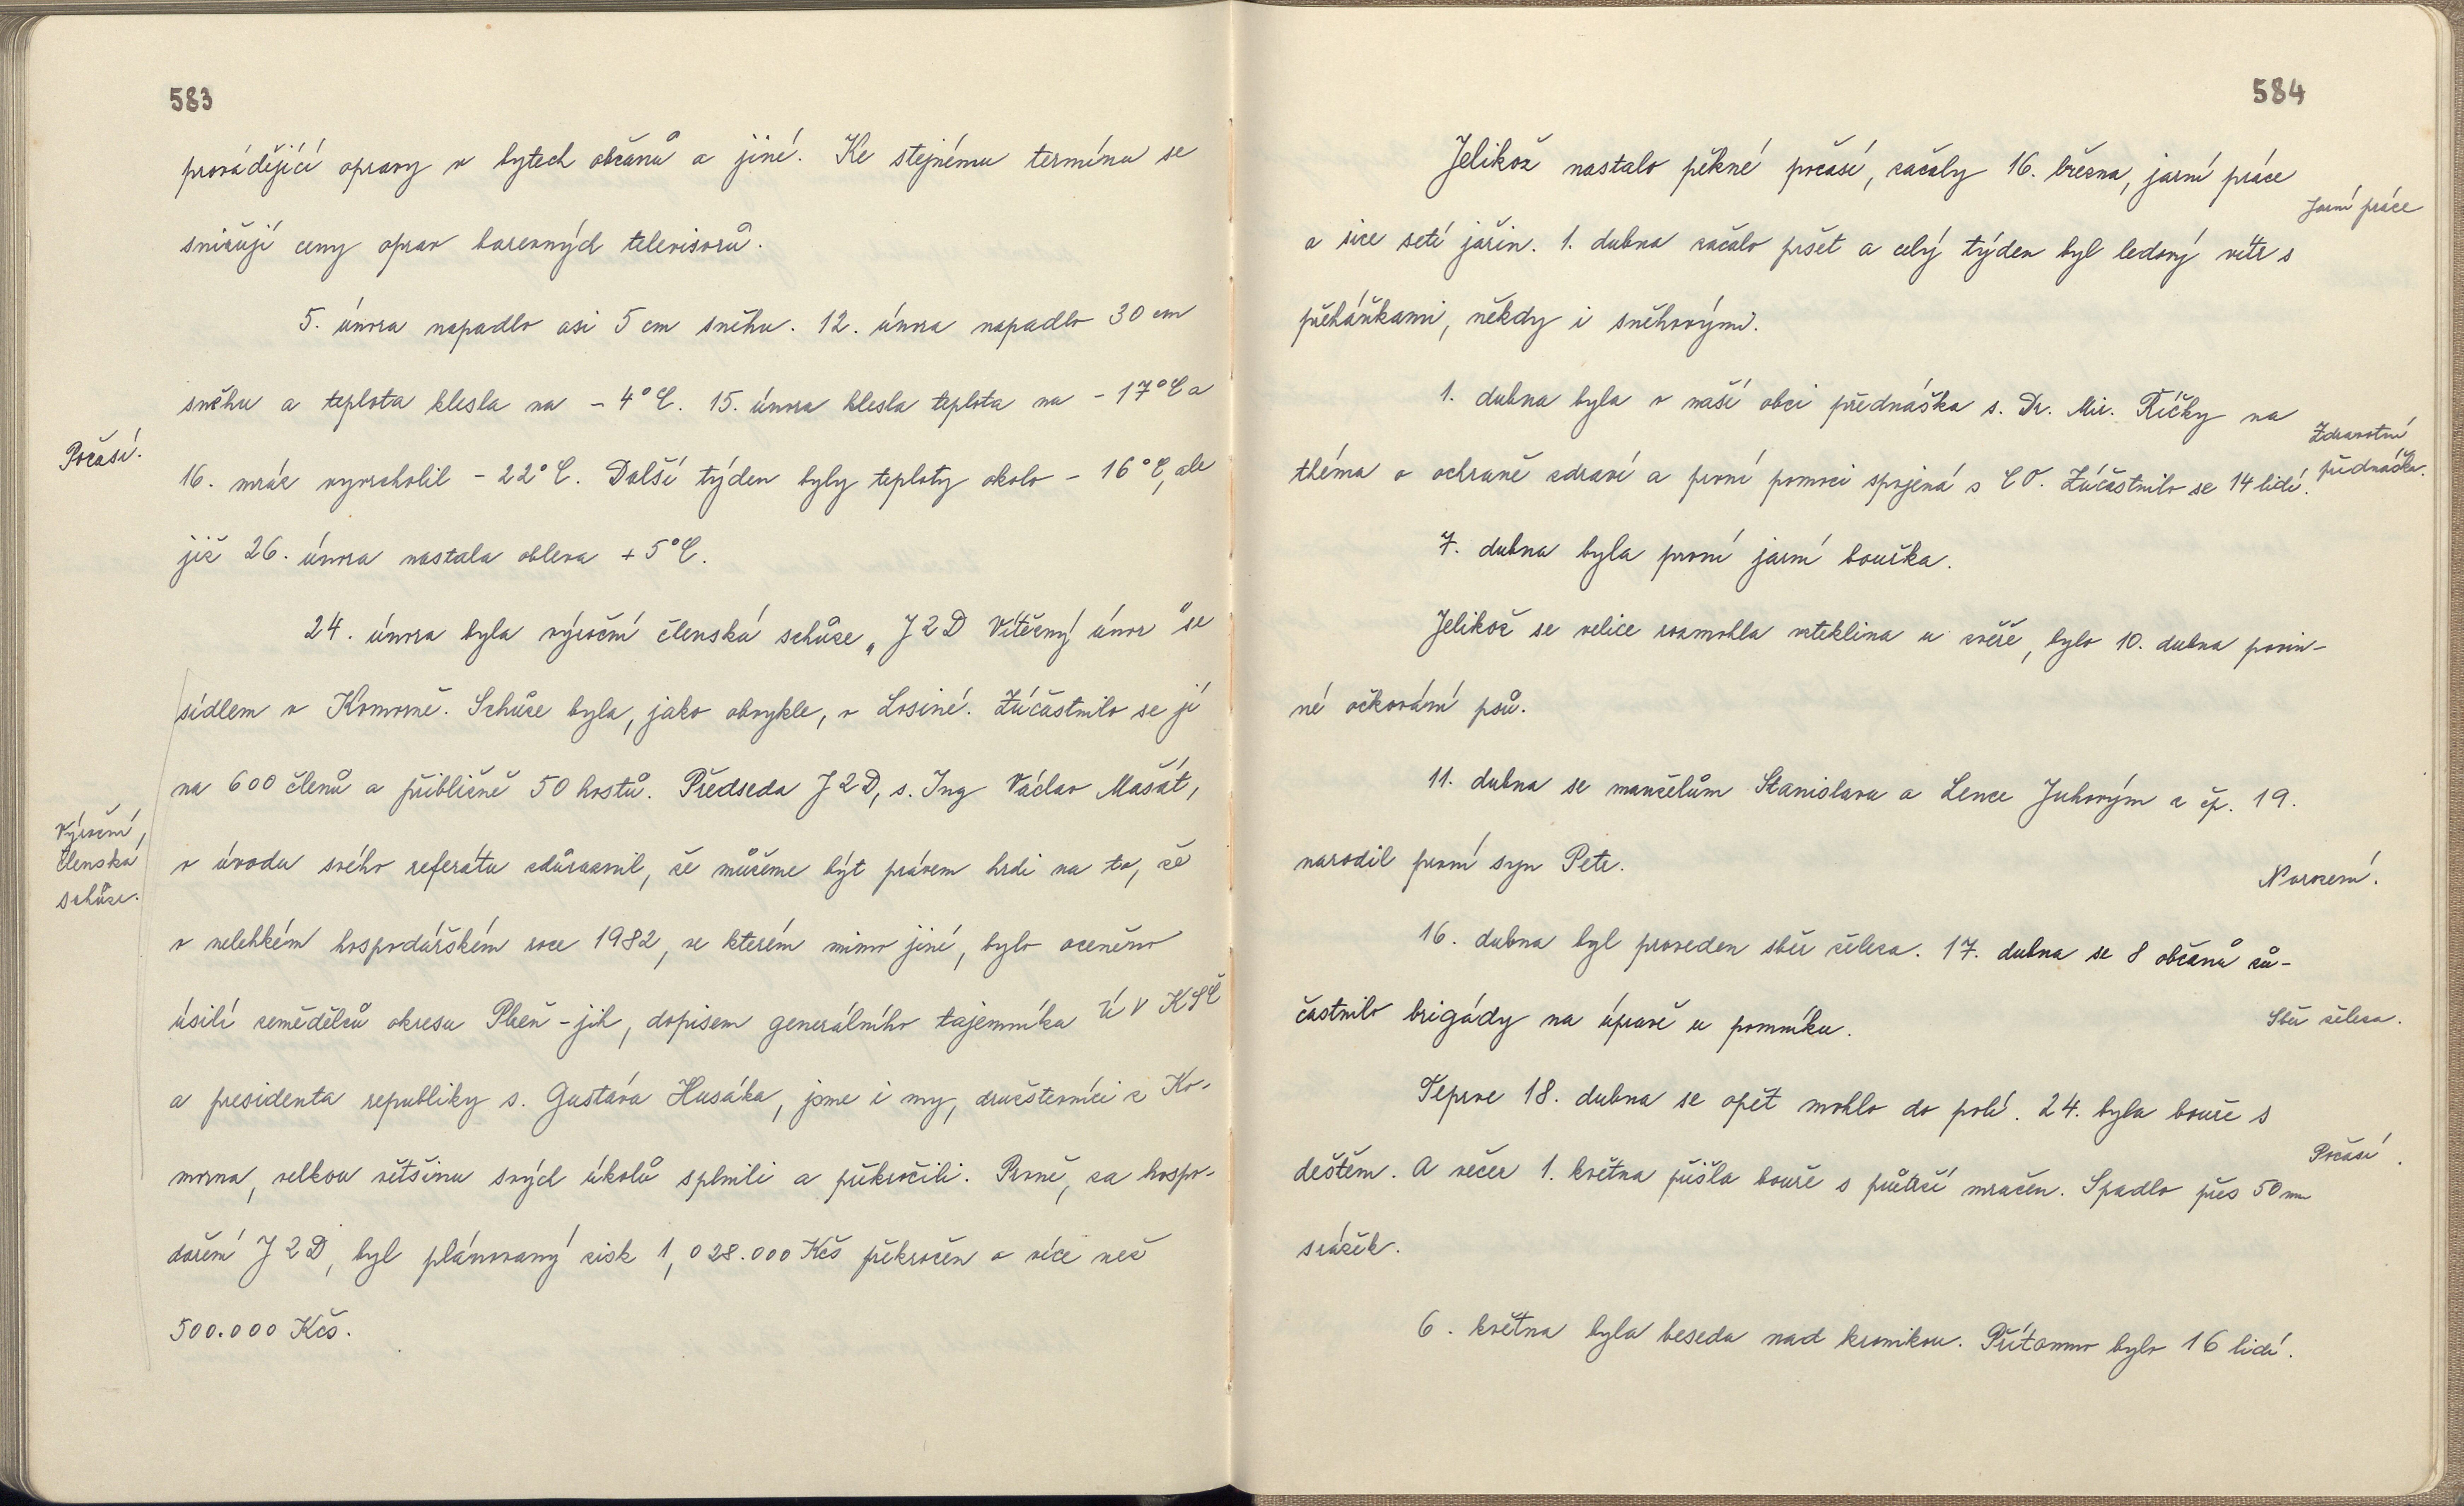 583
provádějící opravy v bytech občanů a jiné. Ke stejnému termínu se
snižují ceny oprav barevných televisorů.
5. února napadlo asi 5 cm sněhu. 12. února napadlo 30 cm
sněhu a teplota klesla na - 4°C. 15. února klesla teplota na - 17°C a
Počasí.
16. mráz vyvrcholil - 22°C. Další týden byly teploty okolo - 16°C, ale
již 26. února nastala obleva + 5°C.
24. února byla výroční členská schůze „JZD Vítězný únor" se
sídlem v Komorně. Schůze byla, jako obvykle, v Losiné. Zúčastnilo se jí
na 600 členů a přibližně 50 hostů. Předseda JZD, s. Ing Václav Mašát,
Výroční
členská
schůze.
v úvodu svého referátu zdůraznil, že můžeme být právem hrdi na to, že
v nelehkém hospodářském roce 1982, ve kterém mimo jiné, bylo oceněno
úsilí zemědělců okresu Plzeň - jih, dopisem generálního tajemníka ÚV KSČ
a presidenta republiky s. Gustáva Husáka, jsme i my, družstevníci z Ko-
morna, velkou většinu svých úkolů splnili a překročili. Prvně, za hospo-
daření JZD, byl plánovaný zisk 1,028.000 Kčs překročen o více než
500.000 Kčs.
584
Jelikož nastalo pěkné počasí, začaly 16. března, jarní práce
Jarní práce
a sice setí jařin. 1. dubna začalo pršet a celý týden byl ledový vítr s
přeháňkami, někdy i sněhovými.
1. dubna byla v naší obci přednáška s. Dr. Mir. Říčky na
Zdravotní
přednáška.
théma o ochraně zdraví a první pomoci spojená s CO. Zúčastnilo se 14 lidí.
7. dubna byla první jarní bouřka.
Jelikož se velice rozmohla vzteklina u zvěře, bylo 10. dubna povin-
né očkování psů.
11. dubna se manželům Stanislavu a Lence Juhovým z čp. 19.
narodil první syn Petr.
Narození.
16. dubna byl proveden sběr železa. 17. dubna se 8 občanů zú-
častnilo brigády na úpravě u pomníku.
Sběr železa.
Teprve 18. dubna se opět mohlo do polí. 24. byla bouře s
Počasí.
deštěm. A večer 1. května přišla bouře s průtrží mračen. Spadlo přes 50 mm
srážek.
6. května byla beseda nad kronikou. Přítomno bylo 16 lidí.